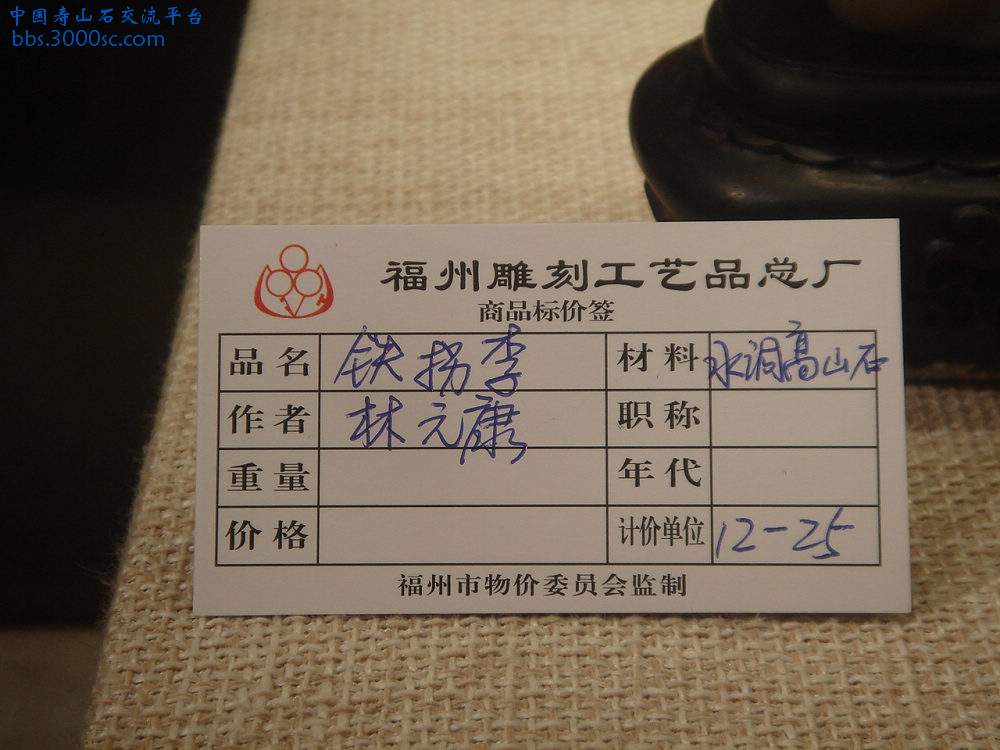 中国寿山石交流平台
bbs.3000sc.com
福州雕刻工艺品总厂
商品标价签
品名 铁拐李 材料 水洞高山石
作者 林元康 职称
重量 年代
价格 计价单位 12-25
福州市物价委员会监制